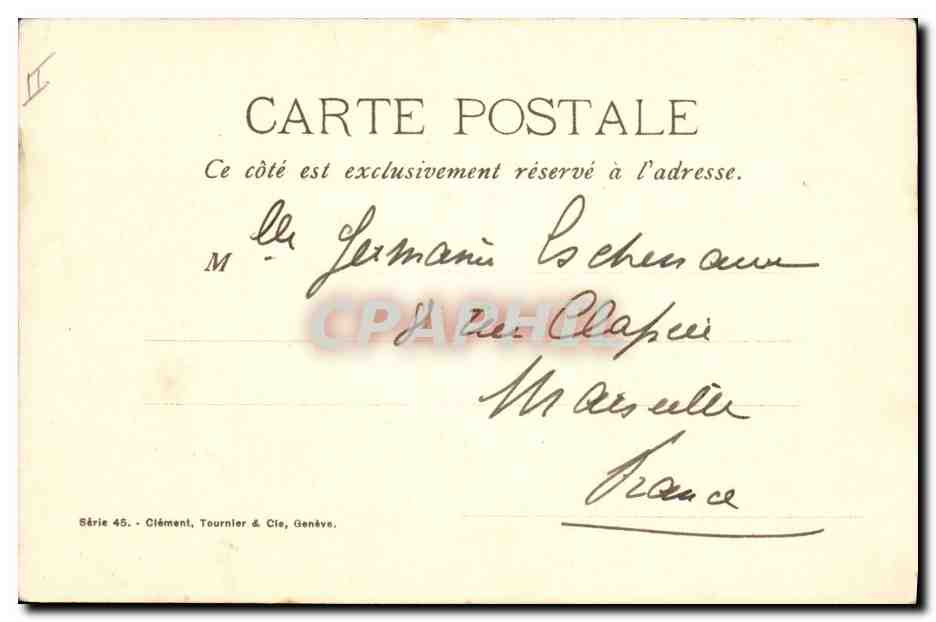 II
CARTE POSTALE
Ce côté est exclusivement réservé à l'adresse.
Mlle Germaine
8 rue Clapier
CPAPHIL
Marseille
France
Série 45. - Clément, Tournier & Cie, Genève.